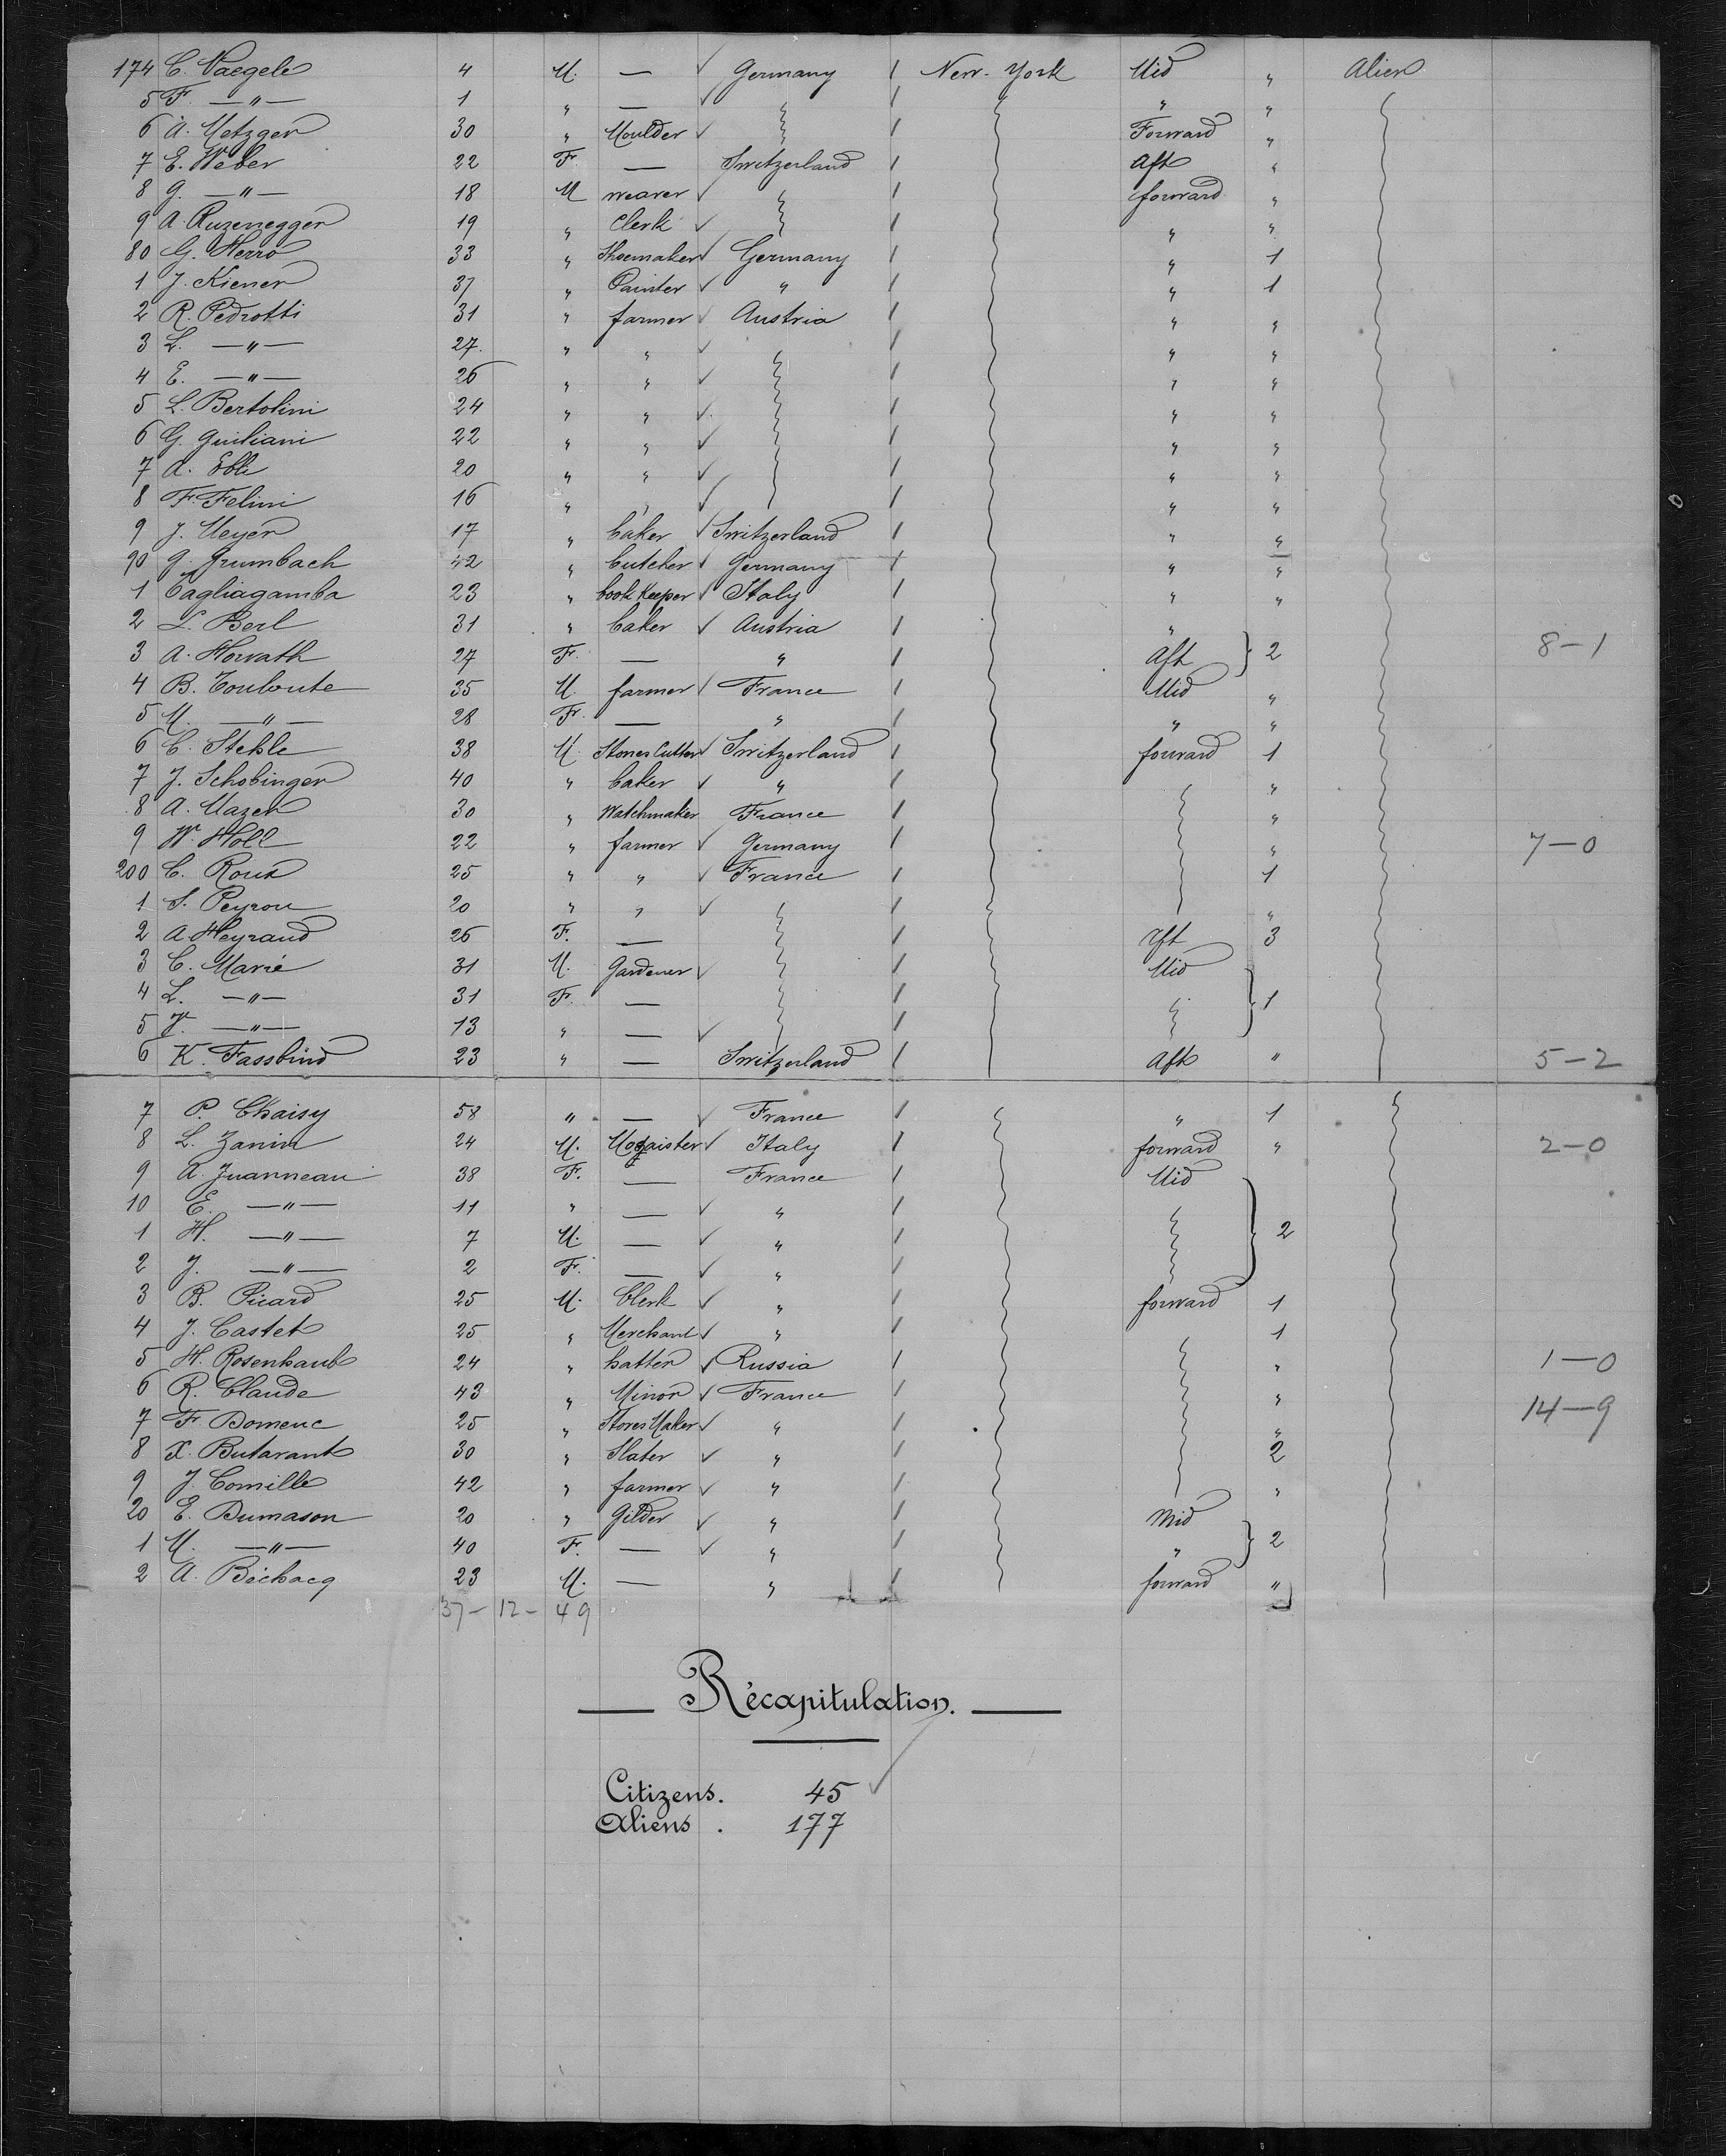 174 C. Naegele 4 M. — ✓ Germany / New-York Mid " Alien
5 F. —"— 1 " — ✓ /  " "
6 A. Metzger 30 " Moulder ✓ / Forward "
7 E. Weber 22 F. — Switzerland / Aft "
8 G. —"— 18 M weaver ✓ / forward "
9 A. Ruzenegger 19 " Clerk ✓ / " "
80 G. Herro 33 " Shoemaker ✓ Germany / " 1
1 J. Kiener 37 " Painter ✓ " / " 1
2 R. Pedrotti 31 " farmer ✓ Austria / " "
3 L. —"— 27. " " ✓ / " "
4 E. —"— 26 " " ✓ / " "
5 L. Bertolini 24 " " ✓ / " "
6 G. Guiliani 22 " " ✓ / " "
7 A. Ebli 20 " " ✓ / " "
8 F. Felini 16 " " ✓ / " "
9 J. Meyer 17 " baker ✓ Switzerland / " "
90 G. Grumbach 42 " butcher ✓ Germany / " "
1 Cagliagamba 23 " book Keeper ✓ Italy / " "
2 L. Berl 31 " baker ✓ Austria / "
3 A. Horvath 27 F. — " / Aft } 2 8-1
4 B. Touloute 35 M. farmer ✓ France / Mid "
5 M. —"— 28 F. — " / " "
6 C. Stehle 38 M. Stones Cutter ✓ Switzerland / forward 1
7 J. Schobinger 40 " baker ✓ " / "
8 A. Mazer 30 " Watchmaker France / "
9 W. Holl 22 " farmer ✓ Germany / " 7-0
200 C. Roux 25 " " ✓ France / 1
1 S. Peyron 20 " " ✓ / "
2 A. Heyraud 26 F. — / Aft 3
3 C. Marié 31 M. Gardener ✓ / Mid
4 L. —"— 31 F. — / } 1
5 J. —"— 13 " — ✓ /
6 K. Fassbind 23 " — Switzerland / Aft " 5-2
7 P. Chaisy 58 " — ✓ France / " 1
8 L. Zanin 24 M. Mozaister ✓ Italy / forward " 2-0
9 A. Juanneau 38 F. — France / Mid
10 E. —"— 11 " — ✓ " /
1 H. —"— 7 M. — ✓ " / } 2
2 J. —"— 2 F. — ✓ " /
3 B. Picard 25 M. Clerk ✓ " / forward 1
4 J. Castet 25 " Merchant ✓ " / 1
5 H. Rosenhaub 24 " hatter ✓ Russia / " 1-0
6 R. Claude 43 " Minor ✓ France / " 14-9
7 F. Domenc 25 " Stores Maker ✓ " / "
8 X. Butavant 30 " Slater ✓ " / 2
9 J. Comille 42 " farmer ✓ " / "
20 E. Dumason 20 " Gilder ✓ " / Mid
1 M. —"— 40 F. — ✓ " / " } 2
2 A. Béchacq 23 M. — " / forward "
37 - 12 - 49
Récapitulation.
Citizens. 45 ✓
Aliens . 177